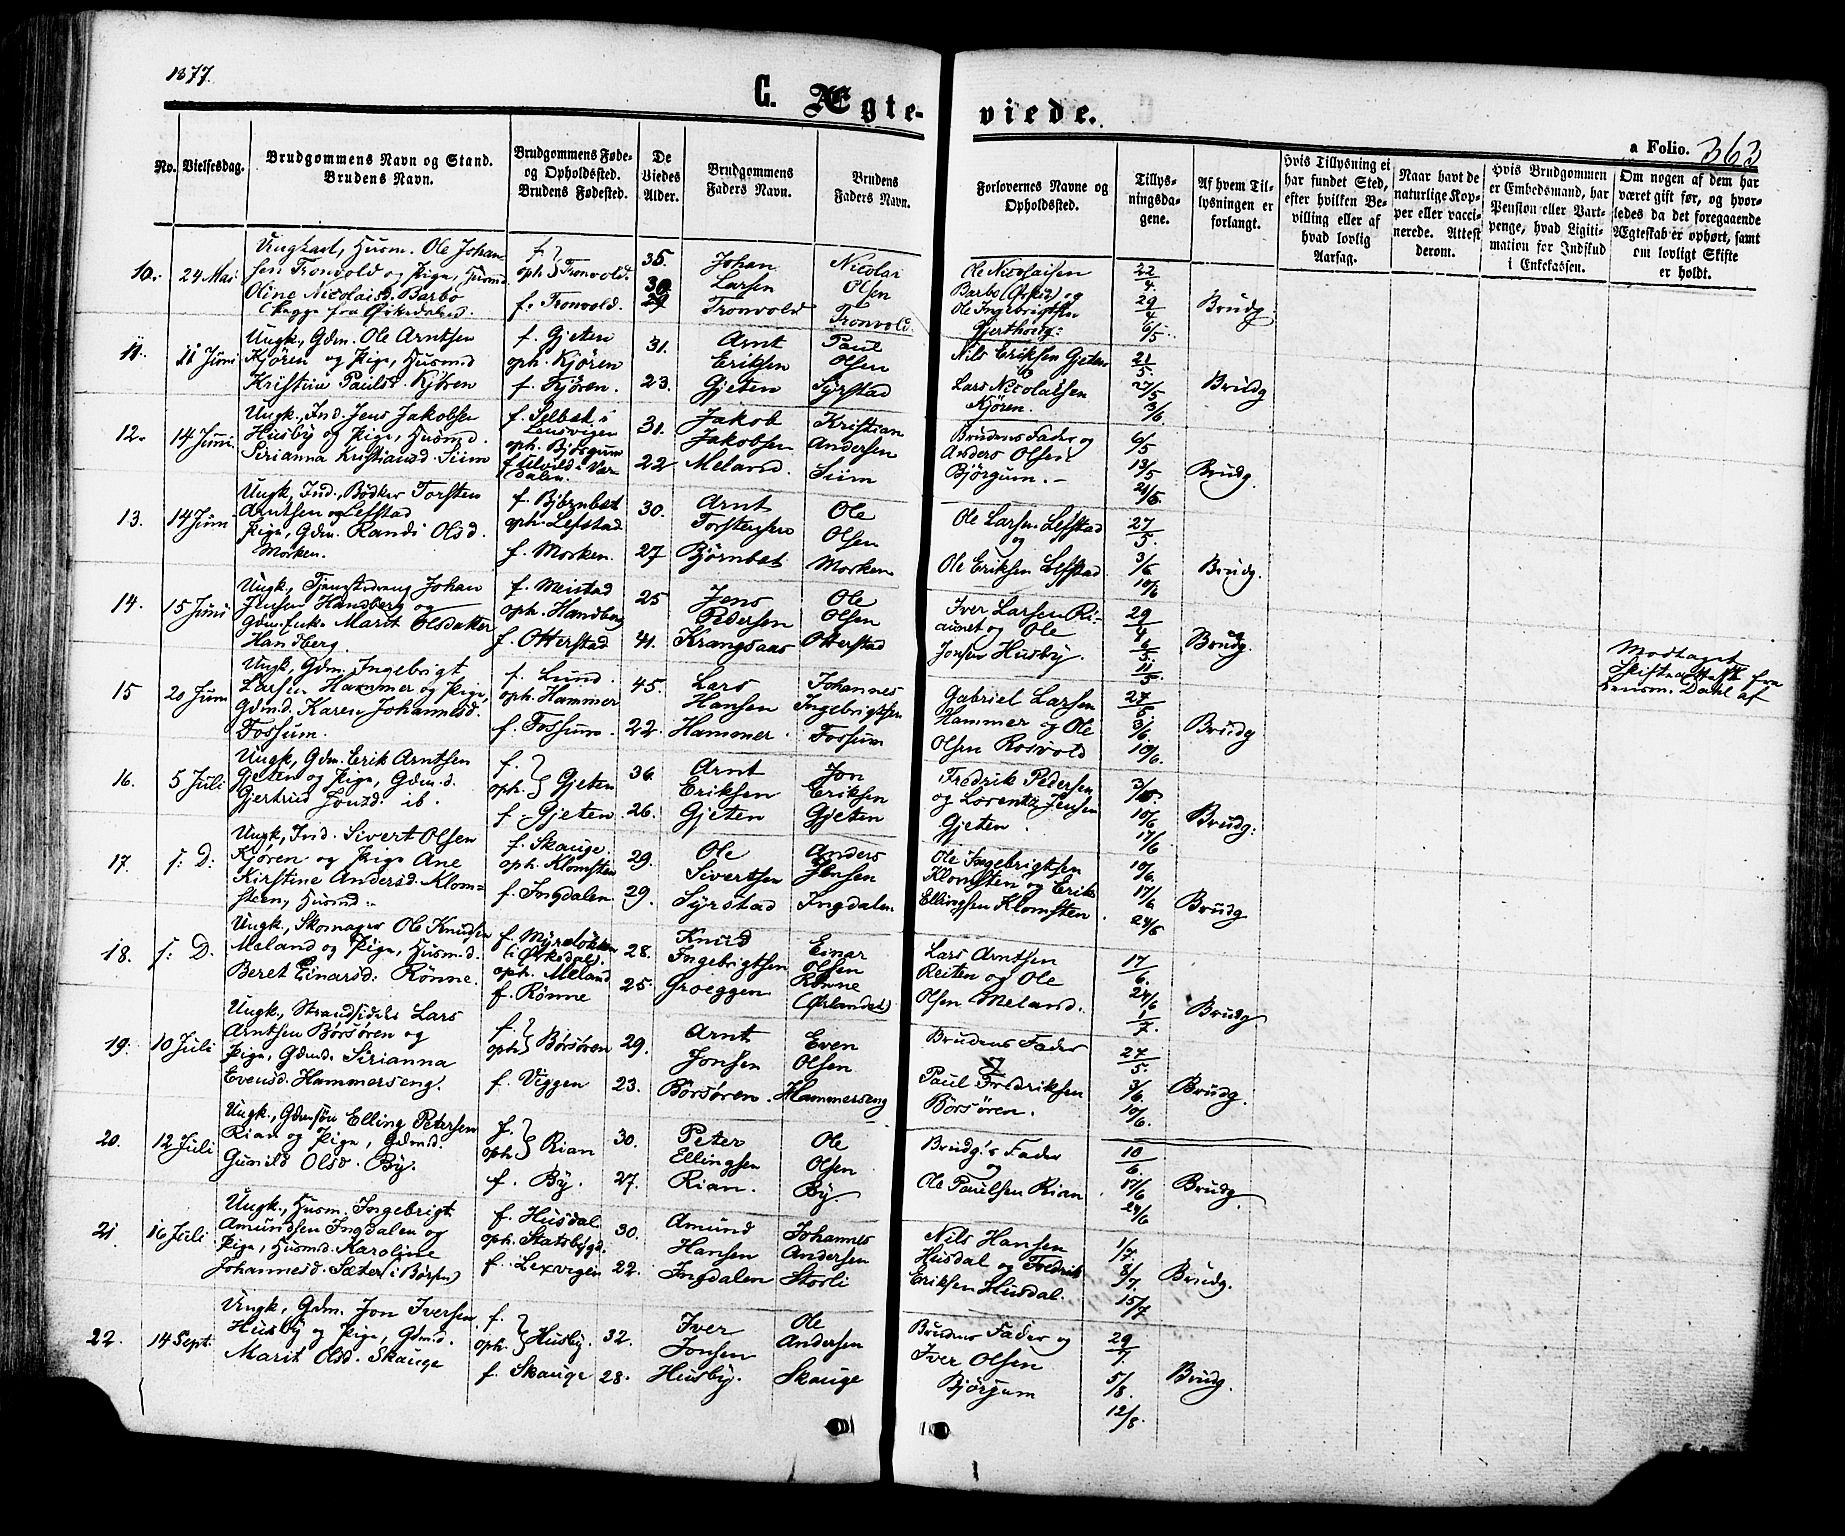 1877.
C. Ægte-
viede.
a Folio. 363
No.
Vielsesdag.
Brudgommens Navn og Stand.
Brudens Navn.
Brudgommens Føde-
og Opholdsted.
Brudens Fødested.
De
Viedes
Alder.
Brudgommens
Faders Navn.
Brudens
Faders Navn.
Forlovernes Navne og
Opholdssted.
Tillys-
ningsda-
gene.
Af hvem Til-
lysningen er
forlangt.
Hvis Tillysning ei
har fundet Sted,
efter hvilken Be-
villing eller af
hvad lovlig
Aarsag.
Naar havt de
naturlige Kop-
per eller vacci-
nerede. Attest
derom.
Hvis Brudgommen
er Embedsmand, har
Pension eller Vart-
penge, hvad Ligiti-
mation for Indskud
i Enkekassen.
Om nogen af dem har
været gift før, og hvor-
ledes da det foregaaende
Ægteskab er ophørt, samt
om lovligt Skifte
er holdt.
10. 24 Mai
Ungkarl, Husm. Ole Johan-
sen Tronvold og Pige, Husmd
Oline Nicolaisd. Barbo
f. } oph. } Tronvold.
f. Tronvold.
35.
30
29
Johan
Larsen
Tronvold
Nicolai
Olsen
Tronvold.
Ole Nicolaisen
Barbo (Ørked) og
Ole Ingebrigtsen
Gjerthoug:
22/4.
29/4
6/5
Brudg.
11. 11 Juni
Ungk, Gdm. Ole Arntsen
Kjören og Pige, Husmd
Kristine Paulsd. Kjören
f. Gjeten
oph. Kjören
f. Kjören.
31.
23.
Arnt
Eriksen
Gjeten
Paul
Olsen
Syrstad
Nils Eriksen Gjeten
Lars Nicolaisen
Kjören.
21/5.
27/5
3/6.
Brudg
12. 14 Juni.
Ungk. Ind. Jens Jakobsen
Husby og Pige, Husmd.
Sirianna Kristiansd. Siim
f. Selbæk i
Leensvigen
oph. Björgum
dalen.
31.
22
Jakob
Jakobsen
Meland.
Kristian
Andersen
Siim
Brudens Fader og
Anders Olsen
Björgum. -
6/5
13/5
21/5.
Brudg.
13. 14 Juni
Ungk, Ind., Bödker Torsten
Arntsen Lefstad og
Pige, Gdm. Randi Olsd.
Morken.
f. Björnbet
oph. Lefstad
f. Morken.
30.
27
Arnt
Torstensen
Björnbet
Ole
Olsen
Morken
Ole Larsen Lefstad
og
Ole Eriksen Lefstad.
27/5.
3/6
10/6
Brudg.
14. 15 Juni
Ungk, Tjenestedreng Johan
Jensen Handberg og
Gdm.enke Marit Olsdatter
Handberg.
f. Meistad
oph. Handberg
f. Otterstad
25
41.
Jens
Pedersen
Krangsaas
Ole
Olsen
Otterstad
Iver Larsen Ri-
aunet og Ole
Jonsen Husby.
29/4
6/5
11/5.
Brudg.
Modtaget
Skifteattest fra
Lensm. Dahl af
15 20 Juni
Ungk, Gdm. Ingebrigt
Larsen Hammer og Pige,
Gdmd. Karen Johannesd.
Fossum.
f. Lund.
oph. Hammer
f. Fossum.
45.
22.
Lars
Hansen
Hammer.
Johannes
Ingebrigtsen
Fossum
Gabriel Larsen
Hammer og Ole
Olsen Rosvold
27/5
3/6
10/6.
Brudg
16. 5 Juli
Ungk, Gdm. Erik Arntsen
Gjeten og Pige, Gdm.d.
Gjertrud Jonsd. ib.
f. } oph. } Gjeten
f. Gjeten
36.
26.
Arnt
Eriksen
Gjeten
Jon
Eriksen
Gjeten
Fredrik Pedersen
og Lorents Jensen
Gjeten.
3/6.
10/6
17/6
Brudg:
17. s: D:
Ungk, Ind. Sivert Olsen
Kjören og Pige Ane
Kirstine Andersd. Klom-
steen, Husmd..
f. Skauge.
oph. Klomsten
f. Ingdalen.
29.
29.
Ole
Sivertsen
Syrstad
Anders
Jensen
Ingdalen.
Ole Ingebrigtsen
Klomsten og Erik
Ellingsen Klomsten.
10/6.
17/6
24/6
Brudg
18. s: D.
Ungk, Skomager Ole Knudsen
Meland og Pige, Husm.d.
Beret Einarsd: Rönne.
(i Ørksdal).
oph. Meland
f. Rönne
28.
25.
Knud
Ingebrigtsen
Groeggen
Einar
Olsen
Rönne
(Ørlandet)
Lars Arntsen
Reiten og Ole
Olsen Meland.
17/6.
24/6
1/7.
Brudg.
19. 10 Juli
Ungk, Strandsidder Lars
Arntsen Börsören og
Pige, Gdmd. Sirianna
Evensd. Hammerseng.
f. } oph. } Börsören
f. Viggen
29.
23.
Arnt
Jonsen
Börsören.
Even
Olsen
Hammerseng
Brudens Fader
og
Paul Fredriksen
Börsören.
27/5.
3/6.
10/6.
Brudg.
20. 12 Juli
Ungk, Gdmsön Elling Petersen
Rian og Pige, Gdmd.
Gunild Olsd. By.
f. } oph. } Rian
f. By.
30.
27.
Peter
Ellingsen
Rian.
Ole
Olsen
By.
Brudg's Fader
og
Ole Paulsen Rian.
10/6.
17/6
24/6
Brudg.
21. 16 Juli
Ungk, Husm. Ingebrigt
Amundsen Ingdalen og
Pige, Husmd. Karoline
Johannesd. Sæter (i Börsen)
f. Husdal.
oph. Statsbygd.
f. Lexvigen
30.
22.
Amund
Hansen
Ingdalen
Johannes
Andersen
Storli
Nils Hansen
Husdal og Fredrik
Eriksen Husdal.
1/7.
8/7.
15/7
Brudg.
22. 14 Sept.
Ungk, Gdm. Jon Iversen
Husby og Pige, Gdmd.
Marit Olsd. Skauge
f. } oph. } Husby.
f. Skauge
32.
28.
Iver
Jonsen
Husby.
Ole
Andersen
Skauge
Brudens Fader og
Iver Olsen
Björgum
29/7.
5/8.
12/8.
Brudg.